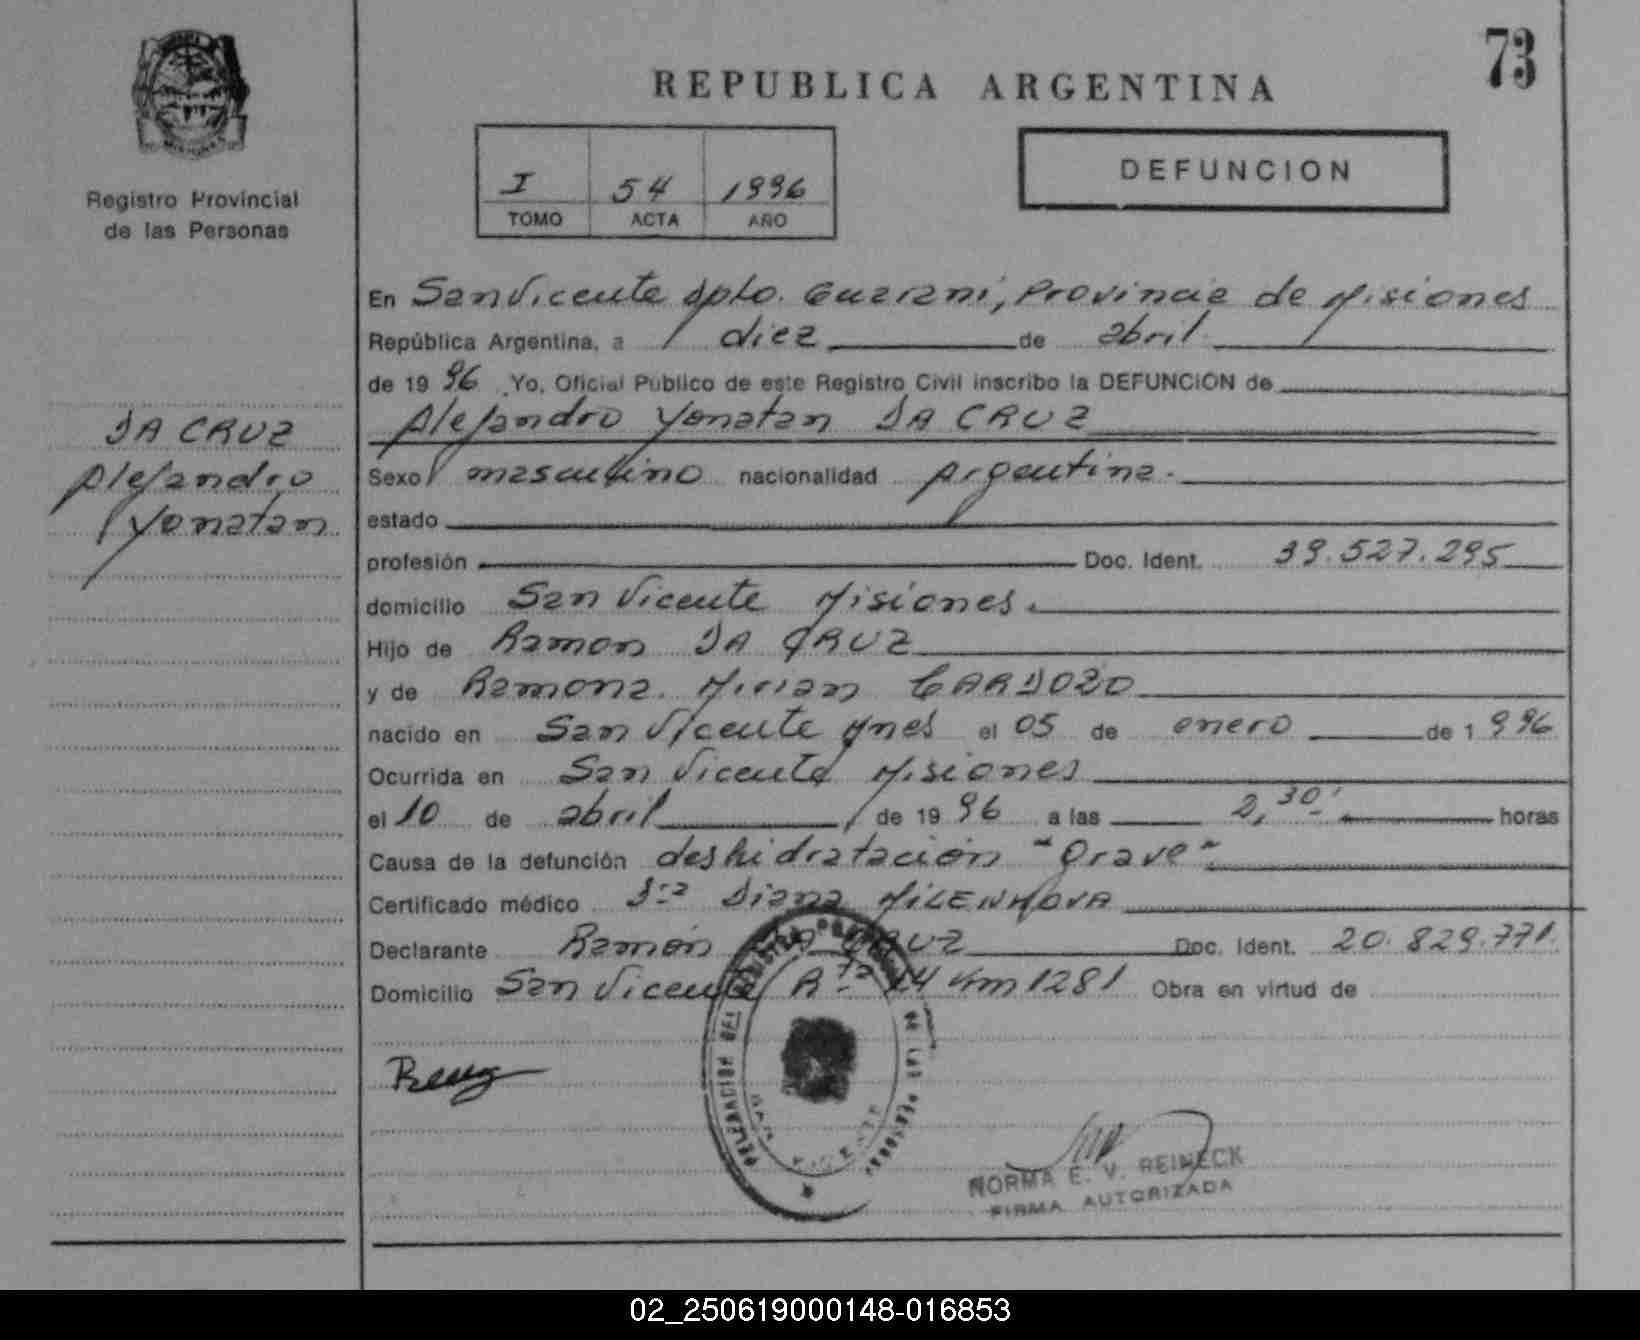 73
REPUBLICA ARGENTINA
DEFUNCION
I 54 1996
TOMO ACTA AÑO
Registro Provincial
de las Personas
DA CRUZ
Alejandro
Yonatan
En San Vicente Dpto. Guarani, Provincia de Misiones
República Argentina, a diez de abril
de 1996 .Yo, Oficial Público de este Registro Civil inscribo la DEFUNCION de
Alejandro Yonatan DA CRUZ
Sexo masculino nacionalidad Argentina.
estado
profesión Doc. Ident. 39.527.295
domicilio San Vicente Misiones.
Hijo de Ramon DA CRUZ
y de Ramona Mirian CARDOZO
nacido en San Vicente Mnes el 05 de enero de 1996
Ocurrida en San Vicente Misiones
el 10 de abril de 1996 a las 2,30' horas
Causa de la defunción deshidratación "Grave"
Certificado médico Dra Diana
Declarante Ramón DA CRUZ Doc. Ident. 20.829.771.
Domicilio San Vicente Rta 14 Km 1281 Obra en virtud de
DELEGACION DEL REGISTRO PROVINCIAL DE LAS PERSONAS
SAN VICENTE
NORMA E. V. REINECK
FIRMA AUTORIZADA
02_250619000148-016853